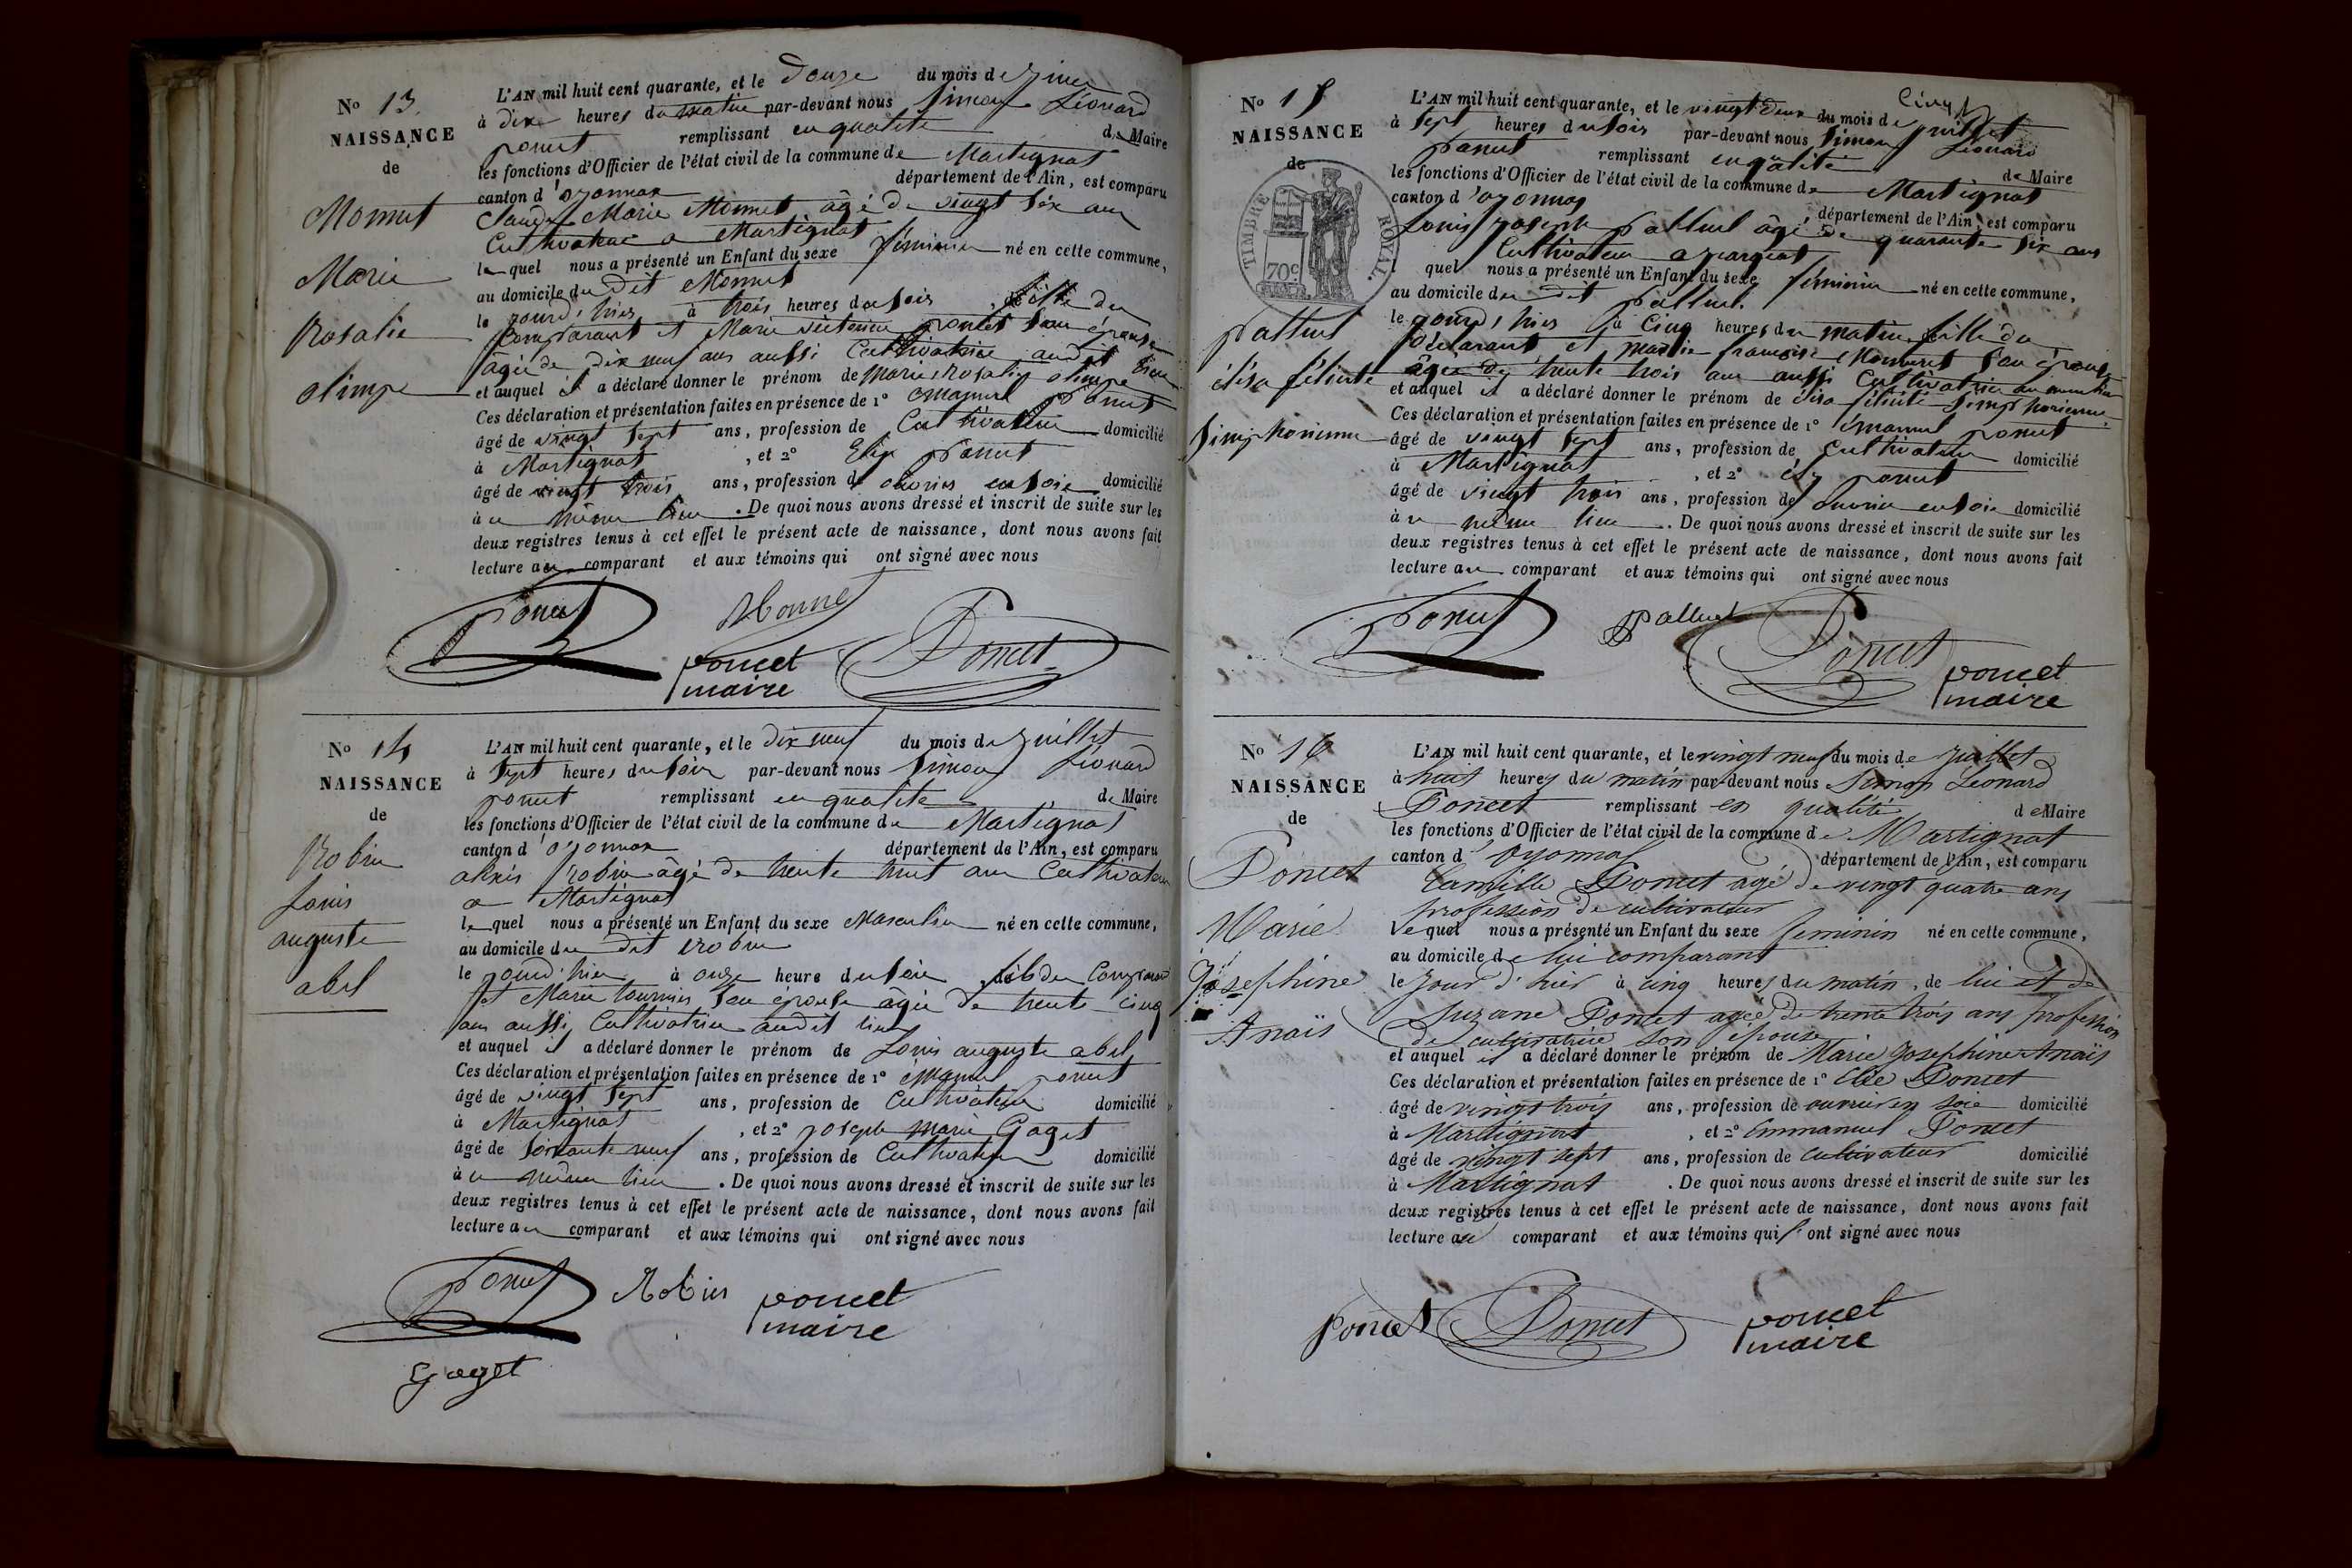 No 13.
NAISSANCE
de
Monnet
Marie
Rosalie
olimpe
L'AN mil huit cent quarante, et le Douze du mois de juin
à dix heures du matin par-devant nous Simon Léonard
poncet remplissant en qualité de Maire
les fonctions d'Officier de l'état civil de la commune de Martignat
canton d'oyonnax département de l'Ain, est comparu
Claude Marie Monnet âgé de vingt six ans
Cultivateur a Martignat
le quel nous a présenté un Enfant du sexe féminin né en cette commune,
au domicile du dit Monnet
le jourd'hier à trois heures du soir, fille du
Comparant et Marie poncet son épouse
âgée de dix neuf ans aussi Cultivatrice audit lieu
et auquel il a déclaré donner le prénom de Marie Rosalie olimpe
Ces déclaration et présentation faites en présence de 1o emanuel poncet
âgé de vingt sept ans, profession de Cultivateur domicilié
à Martignat, et 2o Elie poncet
âgé de vingt trois ans, profession de ouvrier en soie domicilié
à u même lieu. De quoi nous avons dressé et inscrit de suite sur les
deux registres tenus à cet effet le présent acte de naissance, dont nous avons fait
lecture au comparant et aux témoins qui ont signé avec nous
Poncet Monnet
poncet Poncet
maire
No 14
NAISSANCE
de
Robin
Louis
auguste
abel
L'AN mil huit cent quarante, et le dix neuf du mois de juillet
à Sept heures du soir par-devant nous Simon Léonard
poncet remplissant en qualité de Maire
les fonctions d'Officier de l'état civil de la commune de Martignat
canton d'oyonnax département de l'Ain, est comparu
alexis Robin âgé de trente huit ans Cultivateur
a Martignat
le quel nous a présenté un Enfant du sexe Masculin né en cette commune,
au domicile du dit Robin
le jourd'hier à onze heure du soir, fils du Comparant
et Marie tournier son épouse âgée de trente cinq
ans aussi Cultivatrice audit lieu
et auquel il a déclaré donner le prénom de Louis auguste abel
Ces déclaration et présentation faites en présence de 1o emanuel poncet
âgé de vingt sept ans, profession de Cultivateur domicilié
à Martignat, et 2o joseph marie Gaget
âgé de soixante neuf ans, profession de Cultivateur domicilié
à u même lieu. De quoi nous avons dressé et inscrit de suite sur les
deux registres tenus à cet effet le présent acte de naissance, dont nous avons fait
lecture au comparant et aux témoins qui ont signé avec nous
Poncet Robin poncet
maire
Gaget
No 15
NAISSANCE
de
TIMBRE ROYAL
70c
palluel
élisa félicité
Simphorienne
Cinq
L'AN mil huit cent quarante, et le vingt deux du mois de juillet
à sept heures du soir par-devant nous Simon Léonard
poncet remplissant en qualité de Maire
les fonctions d'Officier de l'état civil de la commune de Martignat
canton d'oyonnax, département de l'Ain, est comparu
Louis joseph palluel âgé de quarante six ans
Cultivateur a
quel nous a présenté un Enfant du sexe féminin né en cette commune,
au domicile du dit palluel
le jourd'hier à Cinq heures du matin, fille du
Déclarant et françoise Monnet son épouse
âgée de trente trois ans aussi Cultivatrice au même lieu
et auquel il a déclaré donner le prénom de élisa félicité Simphorienne
Ces déclaration et présentation faites en présence de 1o émanuel poncet
âgé de vingt sept ans, profession de Cultivateur domicilié
à Martignat, et 2o élie poncet
âgé de vingt trois ans, profession de ouvrier en soie domicilié
à u même lieu. De quoi nous avons dressé et inscrit de suite sur les
deux registres tenus à cet effet le présent acte de naissance, dont nous avons fait
lecture au comparant et aux témoins qui ont signé avec nous
Poncet Palluel
Poncet poncet
maire
No 16
NAISSANCE
de
Poncet
Marie
Josephine
Anaïs
L'AN mil huit cent quarante, et le vingt neuf du mois de juillet
à huit heures du matin par-devant nous Simon Léonard
Poncet remplissant en qualité de Maire
les fonctions d'Officier de l'état civil de la commune de Martignat
canton d'oyonnax département de l'Ain, est comparu
Camille Poncet agé de vingt quatre ans
profession de cultivateur
Le quel nous a présenté un Enfant du sexe féminin né en cette commune,
au domicile de lui comparant
le jour d'hier à cinq heures du matin, de lui et de
Suzane Poncet agée de trente trois ans profession
de cultivatrice son épouse
et auquel il a déclaré donner le prénom de Marie Josephine Anaïs
Ces déclaration et présentation faites en présence de 1o Elie Poncet
âgé de vingt trois ans, profession de ouvrier en soie domicilié
à Martignat, et 2o Emmanuel Poncet
âgé de vingt sept ans, profession de cultivateur domicilié
à Martignat. De quoi nous avons dressé et inscrit de suite sur les
deux registres tenus à cet effet le présent acte de naissance, dont nous avons fait
lecture au comparant et aux témoins qui ont signé avec nous
Poncet Poncet poncet
maire